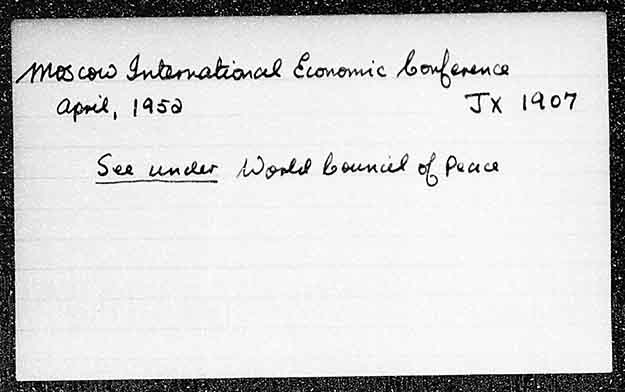 Moscow International Economic Conference
April, 1952 JX 1907
See under World Council of Peace